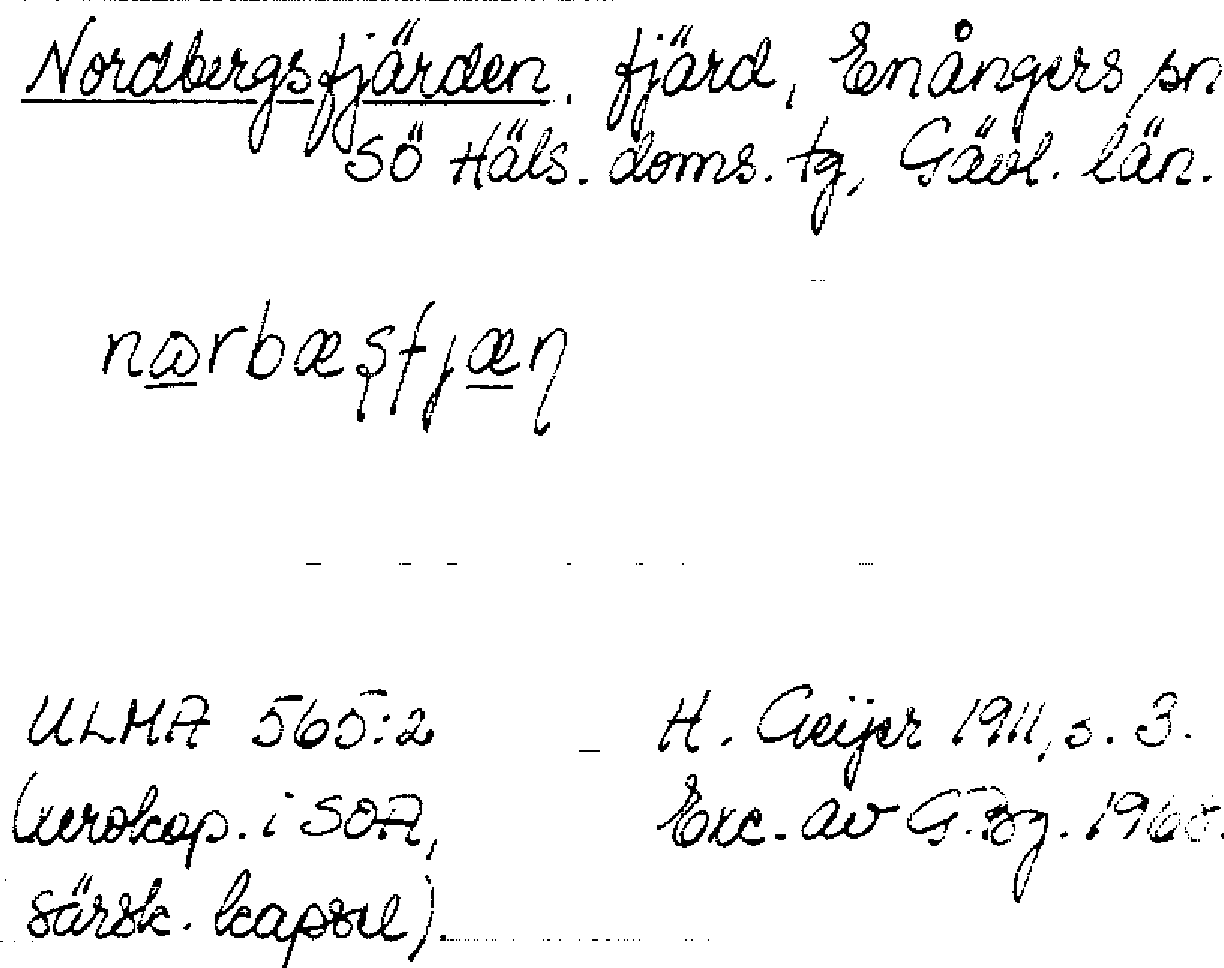 Nordbergsfjärden, fjärd, Enångers sn
SÖ Häls. doms. tg, Gävl. län.
nɷrbæʂfjæɳ
ULMA 565:2 – H. Geijer 1911, s. 3.
(xerokop. i SOA, Exc. av G. Bg. 1968.
särsk. kapsel).